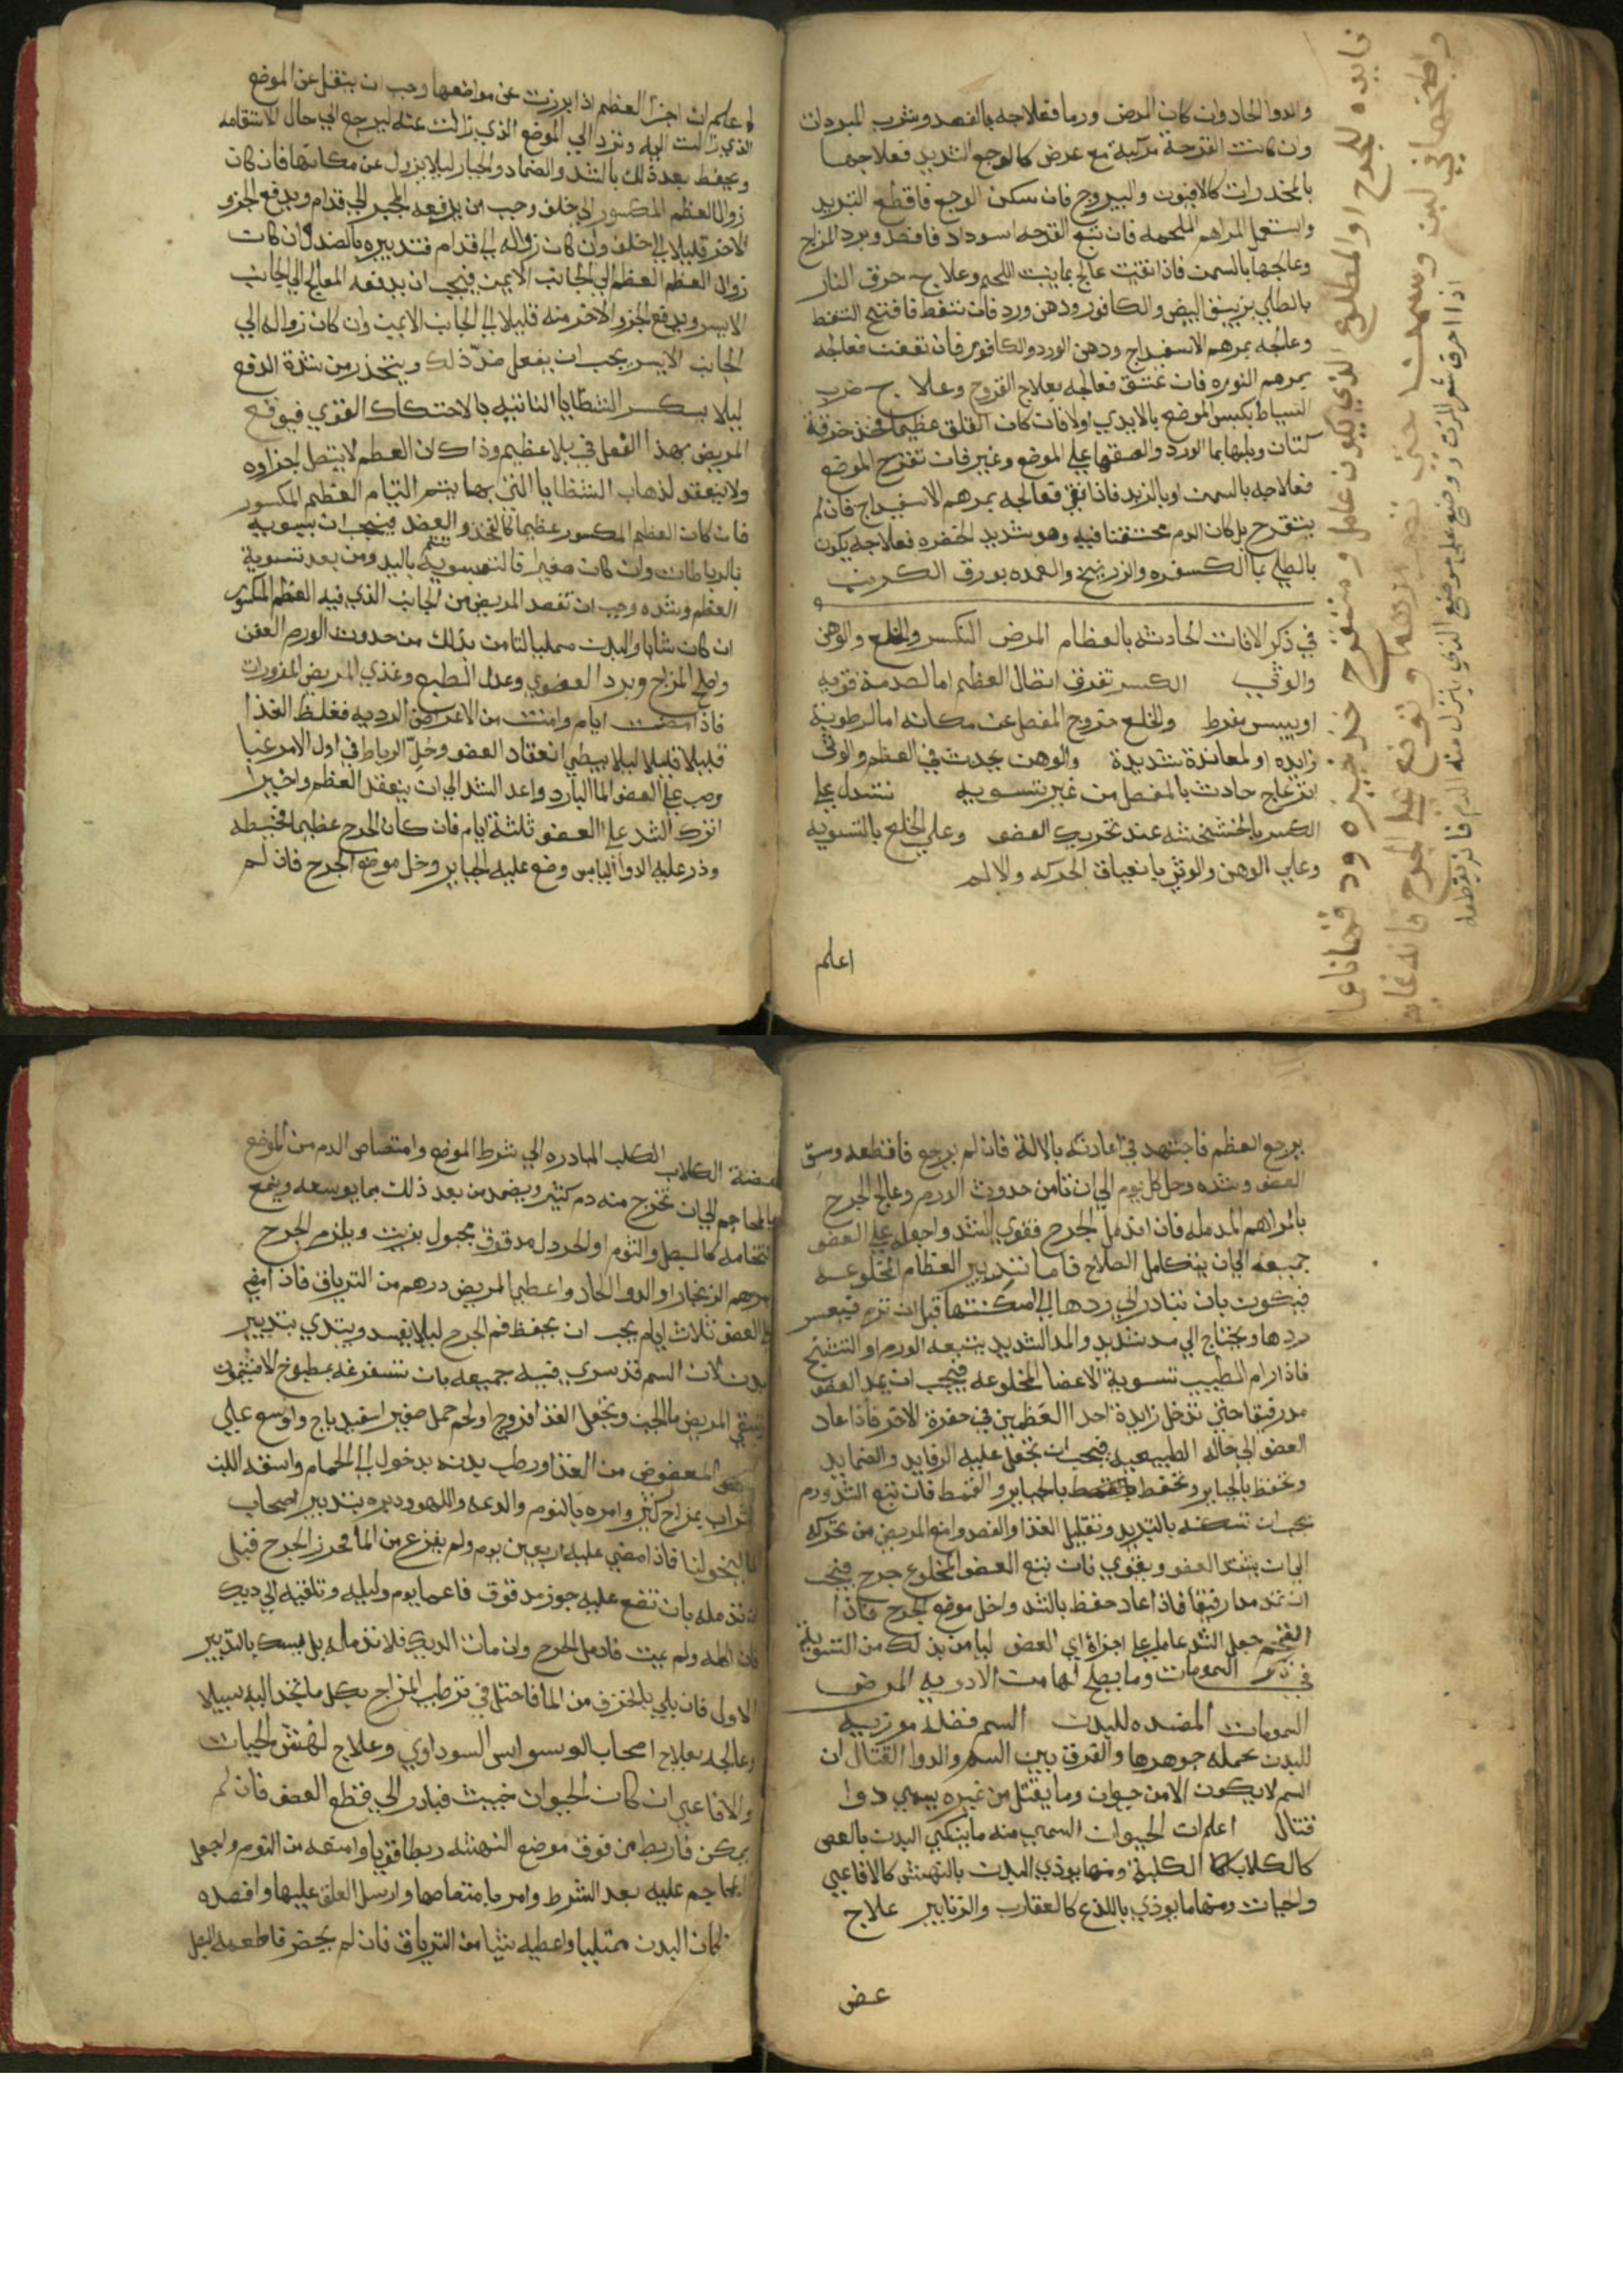 والدوا الحاد وان كان المرض ورما فعلاجه بالفصد وشرب المبردات
وان كانت القرحة مركبة مع عرض كالوجع الشديد فعلاجها
بالمخدرات كالافيون واليبروح فان سكن الوجع فاقطع التبريد
واستعمل المراهم الملحمه فان تبع القرحه اسوداد فافصد وبرد المزاج
وعالجها بالسمن فاذا نقيت عالج بما ينبت اللحم وعلاج حرق النار
بالطلي ببياض البيض والكافور ودهن ورد فان تنفط فافتح التنفط
وعالجه بمرهم الاسفيداج ودهن الورد والكافور فان تعفنت فعالجه
بمرهم النوره فان عتق فعالجه بعلاج القروح وعلاج ضرب
السياط بكبس الموضع بالايدي اولا فان كان القلق عظيما فخذ خرقة
كتان وبلها بما الورد والصقها على الموضع وغير فان تقرح الموضع
فعلاجه بالسمن او بالزبد فاذا نقي فعالجه بمرهم الاسفيداج فان لم
يتقرح بل كان الدم محتقنا فيه وهو شديد الخضره فعلاجه يكون
بالطلي بما الكسفره والزرنيخ والعمده بورق الكرنب
في ذكر الافات الحادثه بالعظام المرض الكسر والخلع والوهن
والوثي الكسر تفرق اتصال العظم اما لصدمة قويه
او بيبس مفرط والخلع خروج المفصل عن مكانه اما لرطوبة
زايده او لمعاندة شديدة والوهن يحدث في العظم والوثي
انزعاج حادث بالمفصل من غير تسويه نستدل على
الكسر بالخشخشه عند تحريك العضو وعلي الخلع بالتسويه
وعلي الوهن والوثي بانعياق الحركه والالم
اعلم
اعلم ان اجزا العظم اذا برزت عن مواضعها وجب ان ينقل عن الموضع
الذي زالت اليه وترد الي الموضع الذي زالت عنه ليرجع الي حال الاستقامه
ويحفظ بعد ذلك بالشد والضماد والجبار ليلا يزول عن مكانها فان كان
زوال العظم المكسور الي خلف وجب ان يدفعه المجبر الي قدام ويدفع الجزو
الاخر قليلا الي خلف وان كان زواله الي قدام فتدبيره بالضد وان كان
زوال العظم العظم الي الجانب الايمن فيجب ان يدفعه المعالج الي الجانب
الايسر ويدفع الجزو الاخر منه قليلا الي الجانب الايمن وان كان زواله الي
الجانب الايسر يجب ان يفعل ضد ذلك ويتحذر من شدة الدفع
ليلا يكسر الشظايا الناتيه بالاحتكاك القوي فيوقع
المريض بهذا الفعل في بلا عظيم وذا كان العظم لا يتصل اجزاوه
ولا ينعقد لذهاب الشظايا التي بها يتم التيام العظم المكسور
فان كان العظم المكسور عظيما كالفخذ والعضد فيجب ان بتسويه
بالرباطات وان كان صغيرا فالتقسويه باليد ومن بعد تسوية
العظم وشده وجب ان تفصد المريض من الجانب الذي فيه العظم المكسور
ان كان شابا والبدن ممتليا لتامن بذلك من حدوث الورم العفن
واصلح المزاج وبرد العضوي وعدل الطبع وغذي المريض المزورات
فاذا مضت ايام وامنت من الاعراض الرديه فغلظ الغذا
قليلا قليلا ليلا يبطي انعقاد العضو وحل الرباط في اول الامر غبا
وصب على العضو الما البارد واعد الشد الي ان ينعقد العظم واخيرا
اترك الشد علي العضو ثلثة ايام فان كان الجرح عظيما فخيطه
وذر عليه الدوا اليابس وضع عليه الجباير وخل موضع الجرح فان لم
يرجع العظم فاجتهد في اعادته بالالة فان لم يرجع فاقطعه وسو
العضو وشده وحل كل يوم الي ان تامن حدوث الورم وعالج الجرح
بالمراهم المدمله فان اندمل الجرح فقوي الشد واجعله علي العضو
جميعه الي ان يتكامل الصلاح فاما تدبير العظام المخلوعه
فيكون بان تبادر الي ردها الي امكنتها قبل ان ترم فيعسر
ردها ويحتاج الي مد شديد والمد الشديد يتبعه الورم او التشنج
فاذا رام الطبيب تسوية الاعضا المخلوعه فيجب ان يمد العضو
مد رقيقا حتي تدخل زايدة احدا العظمين في حفرة الاخر فاذا عاد
العضو الي حاله الطبيعيه فيجب ان تجعل عليه الرفايد والضمايد
وتحفظ بالجباير والقمط فان تبع الشد ورم
يجب ان تسكنه بالتبريد وتقليل الغذا والفصد وامنع المريض من تحركه
الي ان يشتد العضو ويقوي فان تبع العضو المخلوع جرح فيجب
ان تمد مدا رفيقا فاذا عاد حفظ بالشد واخل موضع الجرح فاذا
التحم جعل الشد عاما علي اجزاء اي العضو ليامن بذلك من التسويه
في ذكر السمومات وما يصلح لها من الادويه المرض
السمومات المضده للبدن السم فضلة موزيه
للبدن بجملة جوهرها والفرق بين السم والدوا القتال ان
السم لا يكون الا من حيوان وما يقتل من غيره يسمي دوا
قتال اعلم ان الحيوان السمي منه ما ينكي البدن بالعض
كالكلاب الكلبة ومنها يوذي البدن بالنهش كالافاعي
واحيات ومنها ما يوذي باللذع كالعقارب والزنابير علاج
عض
عضة الكلاب الكلب المبادره الي شرط الموضع وامتصاص الدم من الموضع
بالمحاجم الي ان تخرج منه دم كثير ويضمد من بعد ذلك بما يوسعه ويمنع
التحامه كالبصل والثوم او الخردل مدقوق مجبول بزيت ويلزم الجرح
مرهم الزنجار او الدوا الحاد واعطي المريض درهم من الترياق فاذا مضي
علي العضو ثلاث ايام يجب ان يحفظ فم الجرح ليلا يفسد ويبتدي بتدبير
البدن لان السم قد سري فيه جميعه بان تستفرغه بمطبوخ الافتيمون
وتسقي المريض ما الجبن وتجعل الغذا فروج او لحم حمل صغير اسفيد باج واوسع علي
المعضوض من الغذا ورطب بدنه بدخول الي الحمام واسقه اللبن
وشراب بمزاج كثير وامره بالنوم والدعه واللهو ودبره بتدبير اصحاب
الماليخوليا فاذا مضي عليه اربعين يوم ولم يفزع من الما فحرر الجرح قبل
ان تدمله بان تضع عليه جوز مدقوق ناعما يوم وليله وتلقيه الي ديك
فان اكله ولم يمت فادمل الجرح وان مات الديك فلا تدمله بل تمسك بالتدبير
الاول فان بلي بالخزف من الما فاحتل في ترطيب المزاج بكل ما تجد اليه سبيلا
وعالجه بعلاج اصحاب الوسواس السوداوي وعلاج لهش الحيات
والافاعي ان كان الحيوان خبيث فبادر الي قطع العضو فان لم
يمكن فاربط من فوق موضع النهشه ربطا قويا وامنعه من النوم واجعل
المحاجم عليه بعد الشرط وامر بامتصاصها وارسل العلق عليها وافصده
ان كان البدن ممتليا واعطيه شيا من الترياق فان لم يحضر فاطعمه البصل